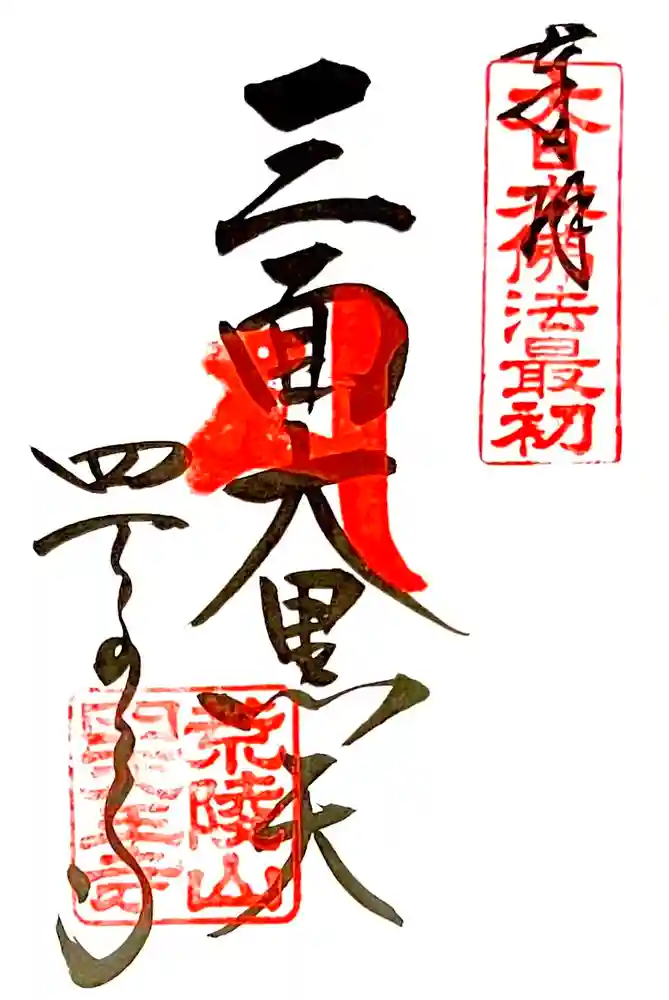 奉拝
大日本佛法最初
三面大黒天
荒陵山
四天王寺
四天王寺